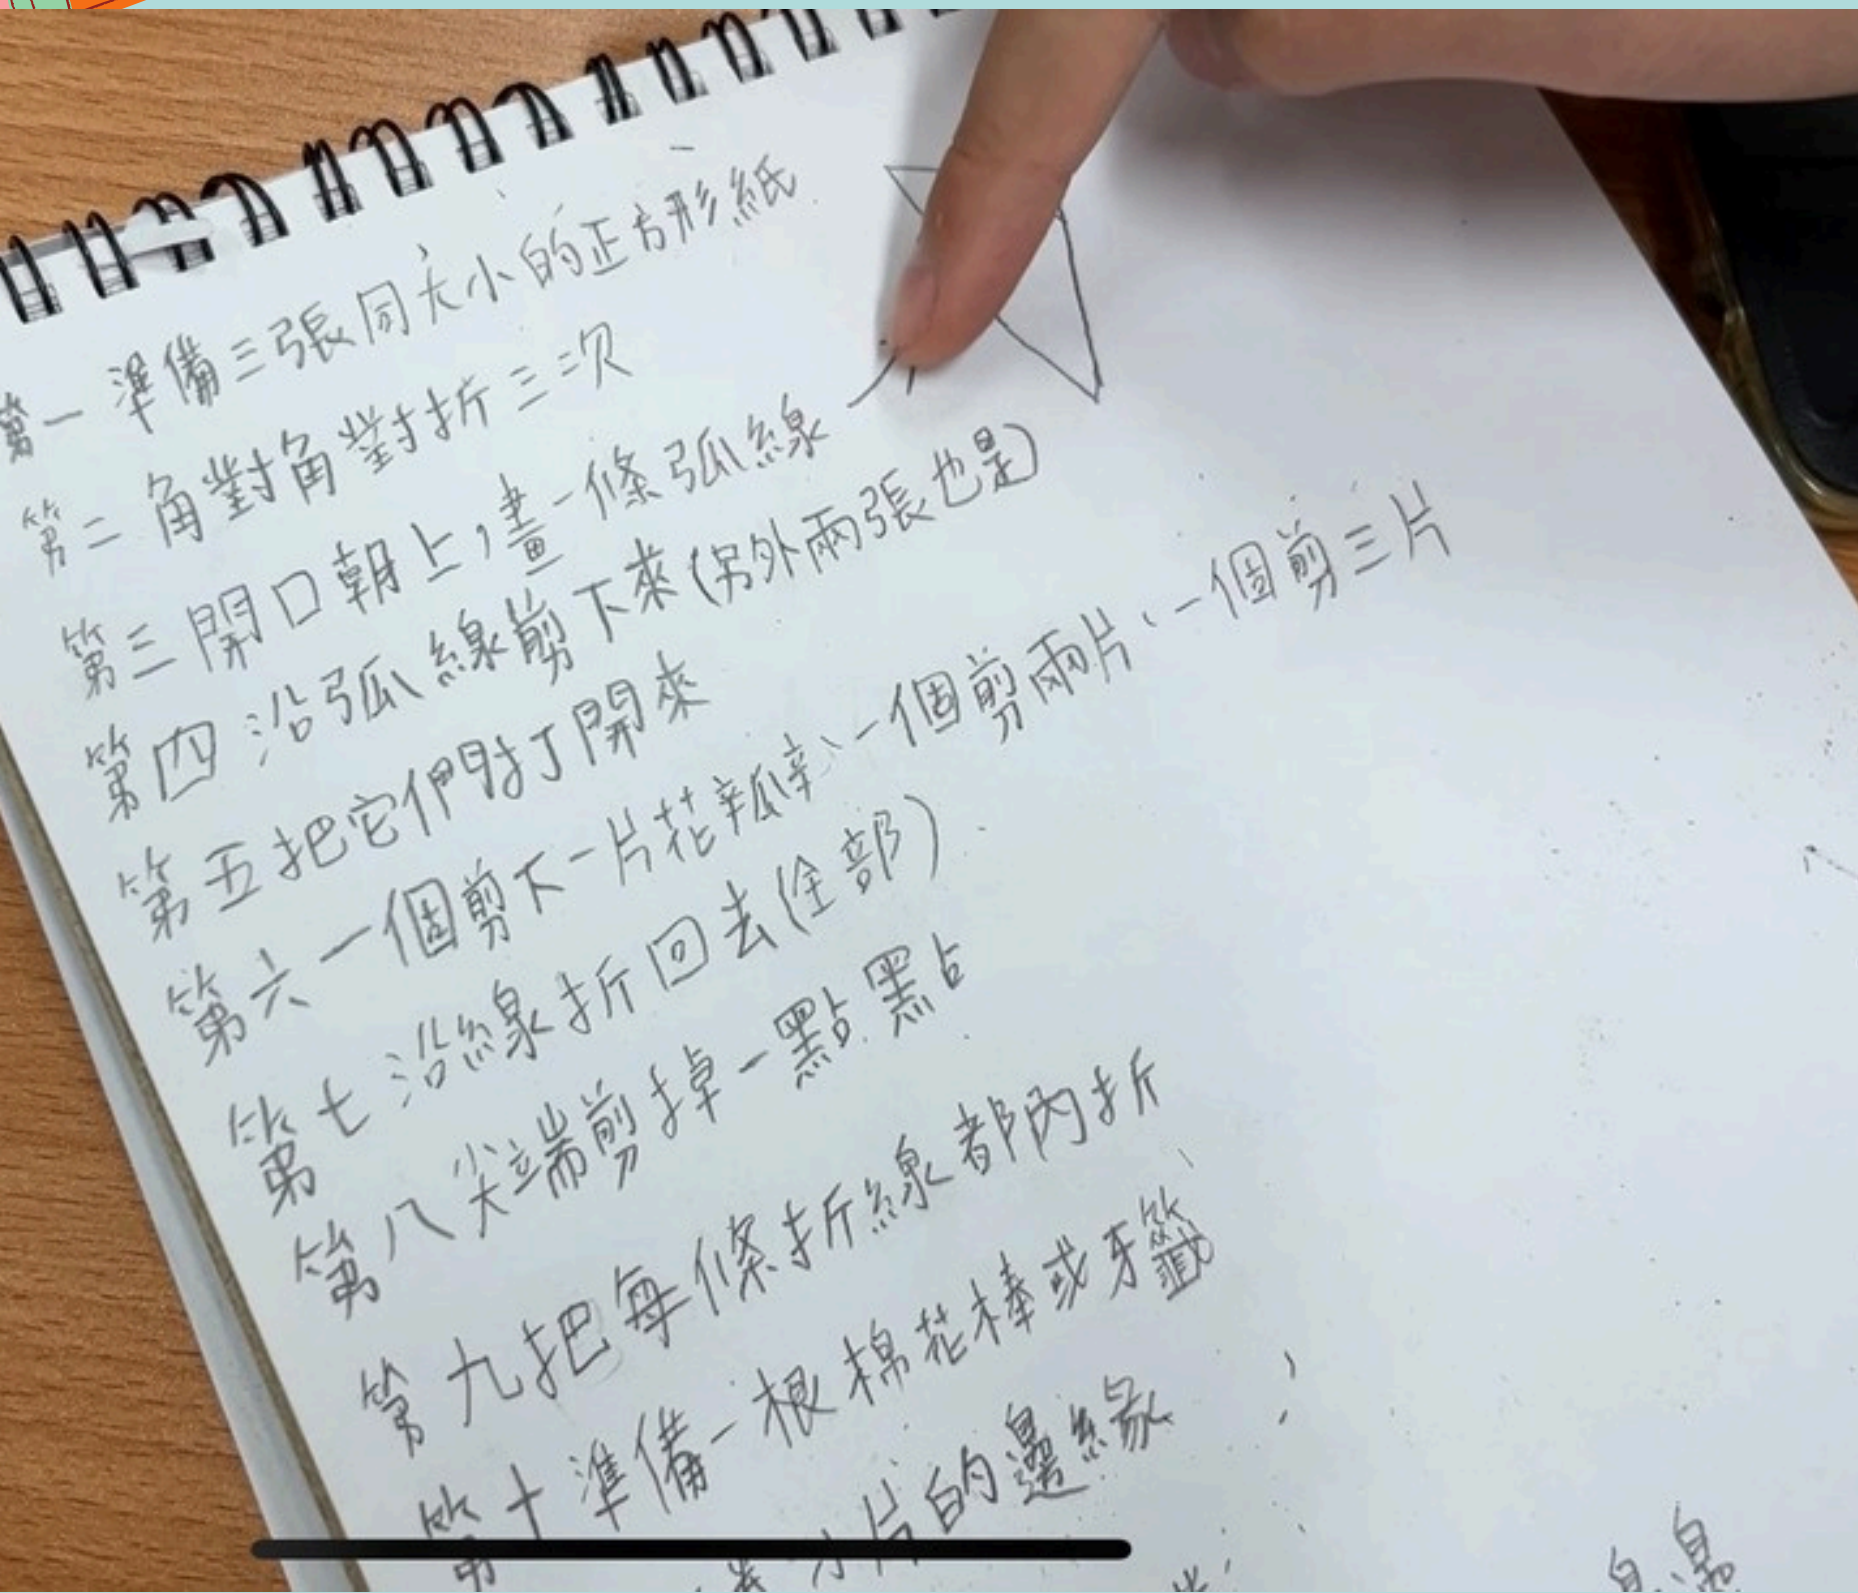 第一準備三張同大小的正方形紙
第二角對角對折三次
第三開口朝上,畫一條弧線
第四沿弧線剪下來(另外兩張也是)
第五把它們打開來
第六一個剪下一片花瓣、一個剪兩片、一個剪三片
第七沿線折回去(全部)
第八尖端剪掉一點點
第九把每條折線都內折
第十準備一根棉花棒或牙籤
片的邊緣